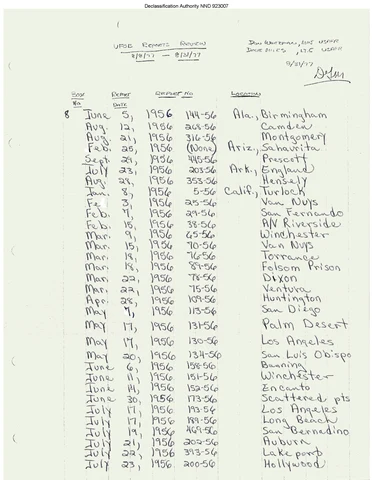 Declassification Authority NND 923007
UFOB REPORTS REVIEW
8/9/77 — 8/31/77
USAFR
USAFR
8/31/77
BOOK REPORT REPORT NO LOCATION
No. DATE
8 June 5, 1956 144-56 Ala., Birmingham
Aug. 12, 1956 268-56 Camden
Aug. 21, 1956 316-56 Montgomery
Feb. 25, 1956 (None) Ariz., Sahaurita
Sept. 29, 1956 445-56 Prescott
July 23, 1956 203-56 Ark., England
Aug. 28, 1956 353-56 Hensely
Jan. 8, 1956 5-56 Calif., Turlock
Fe 3, 1956 25-56 Van Nuys
Feb. 7, 1956 29-56 San Fernando
Feb. 15, 1956 38-56 A/N Riverside
Mar. 9, 1956 65-56 Winchester
Mar. 15, 1956 70-56 Van Nuys
Mar. 18, 1956 76-56 Torrance
Mar. 18, 1956 89-56 Folsom Prison
Mar. 22, 1956 78-56 Dixon
Mar. 22, 1956 75-56 Ventura
Apr. 28, 1956 109-56 Huntington
May 7, 1956 113-56 San Diego
May 17, 1956 131-56 Palm Desert
May 17, 1956 130-56 Los Angeles
May 20, 1956 134-56 San Luis Obispo
June 6, 1956 158-56 Banning
June 11, 1956 151-56 Winchester
June 14, 1956 152-56 Encanto
June 30, 1956 173-56 Scattered pts
July 17, 1956 193-56 Los Angeles
July 17, 1956 189-56 Long Beach
July 19, 1956 469-56 San Bernedino
July 21, 1956 202-56 Auburn
July 22, 1956 393-56 Lakeport
July 23, 1956 200-56 Hollywood